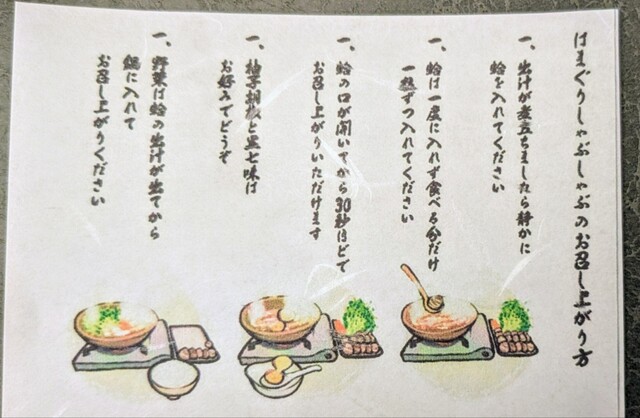 はまぐりしゃぶしゃぶのお召し上がり方
一、出汁が煮立ちましたら静かに
蛤を入れてください
一、蛤は一度に入れず食べる分だけ
一熱ずつ入れてください
一、蛤の口が開いてから30秒ほどで
お召し上がりいただけます
一、柚子胡椒と黒七味は
お好みでどうぞ
一、野菜は蛤の出汁が出てから
鍋に入れて
お召し上がりください